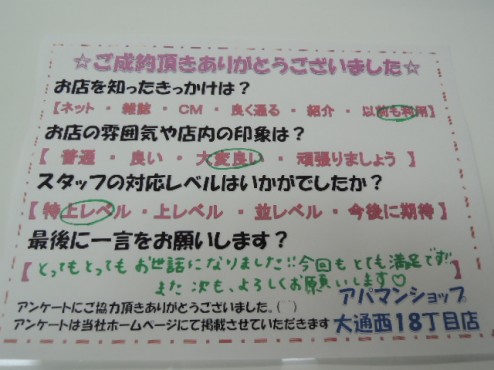 ☆ご成約頂きありがとうございました☆
お店を知ったきっかけは？
【ネット・雑誌・CM・良く通る・紹介・以前も利用】
お店の雰囲気や店内の印象は？
【 普通・良い・大変良い・頑張りましょう 】
スタッフの対応レベルはいかがでしたか？
【特上レベル・上レベル・並レベル・今後に期待】
最後に一言をお願いします？
【とってもとってもお世話になりました!!今回もとても満足です!!
また次も、よろしくお願いします♡
アンケートにご協力頂きありがとうございました。( )
アンケートは当社ホームページにて掲載させていただきます
アパマンショップ
大通西18丁目店